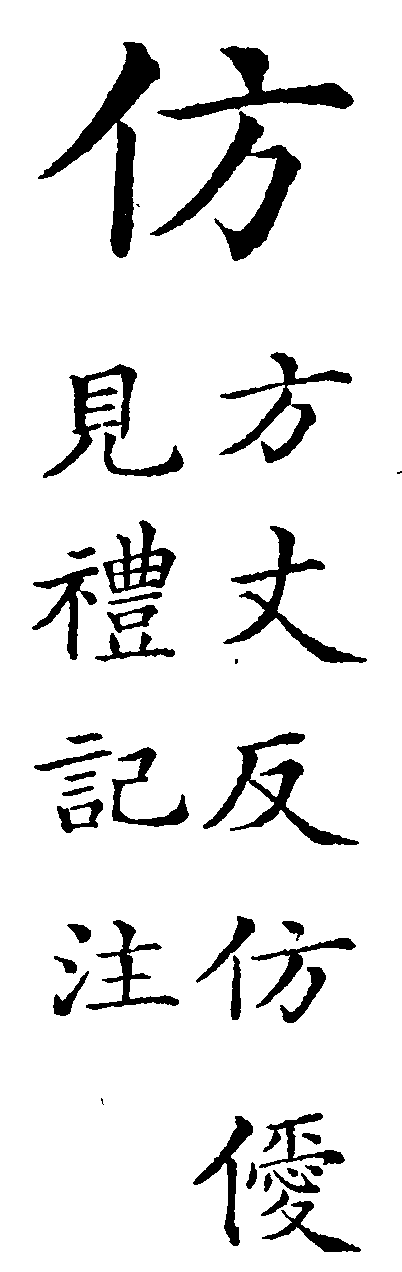 仿
方丈反仿僾
見禮記注